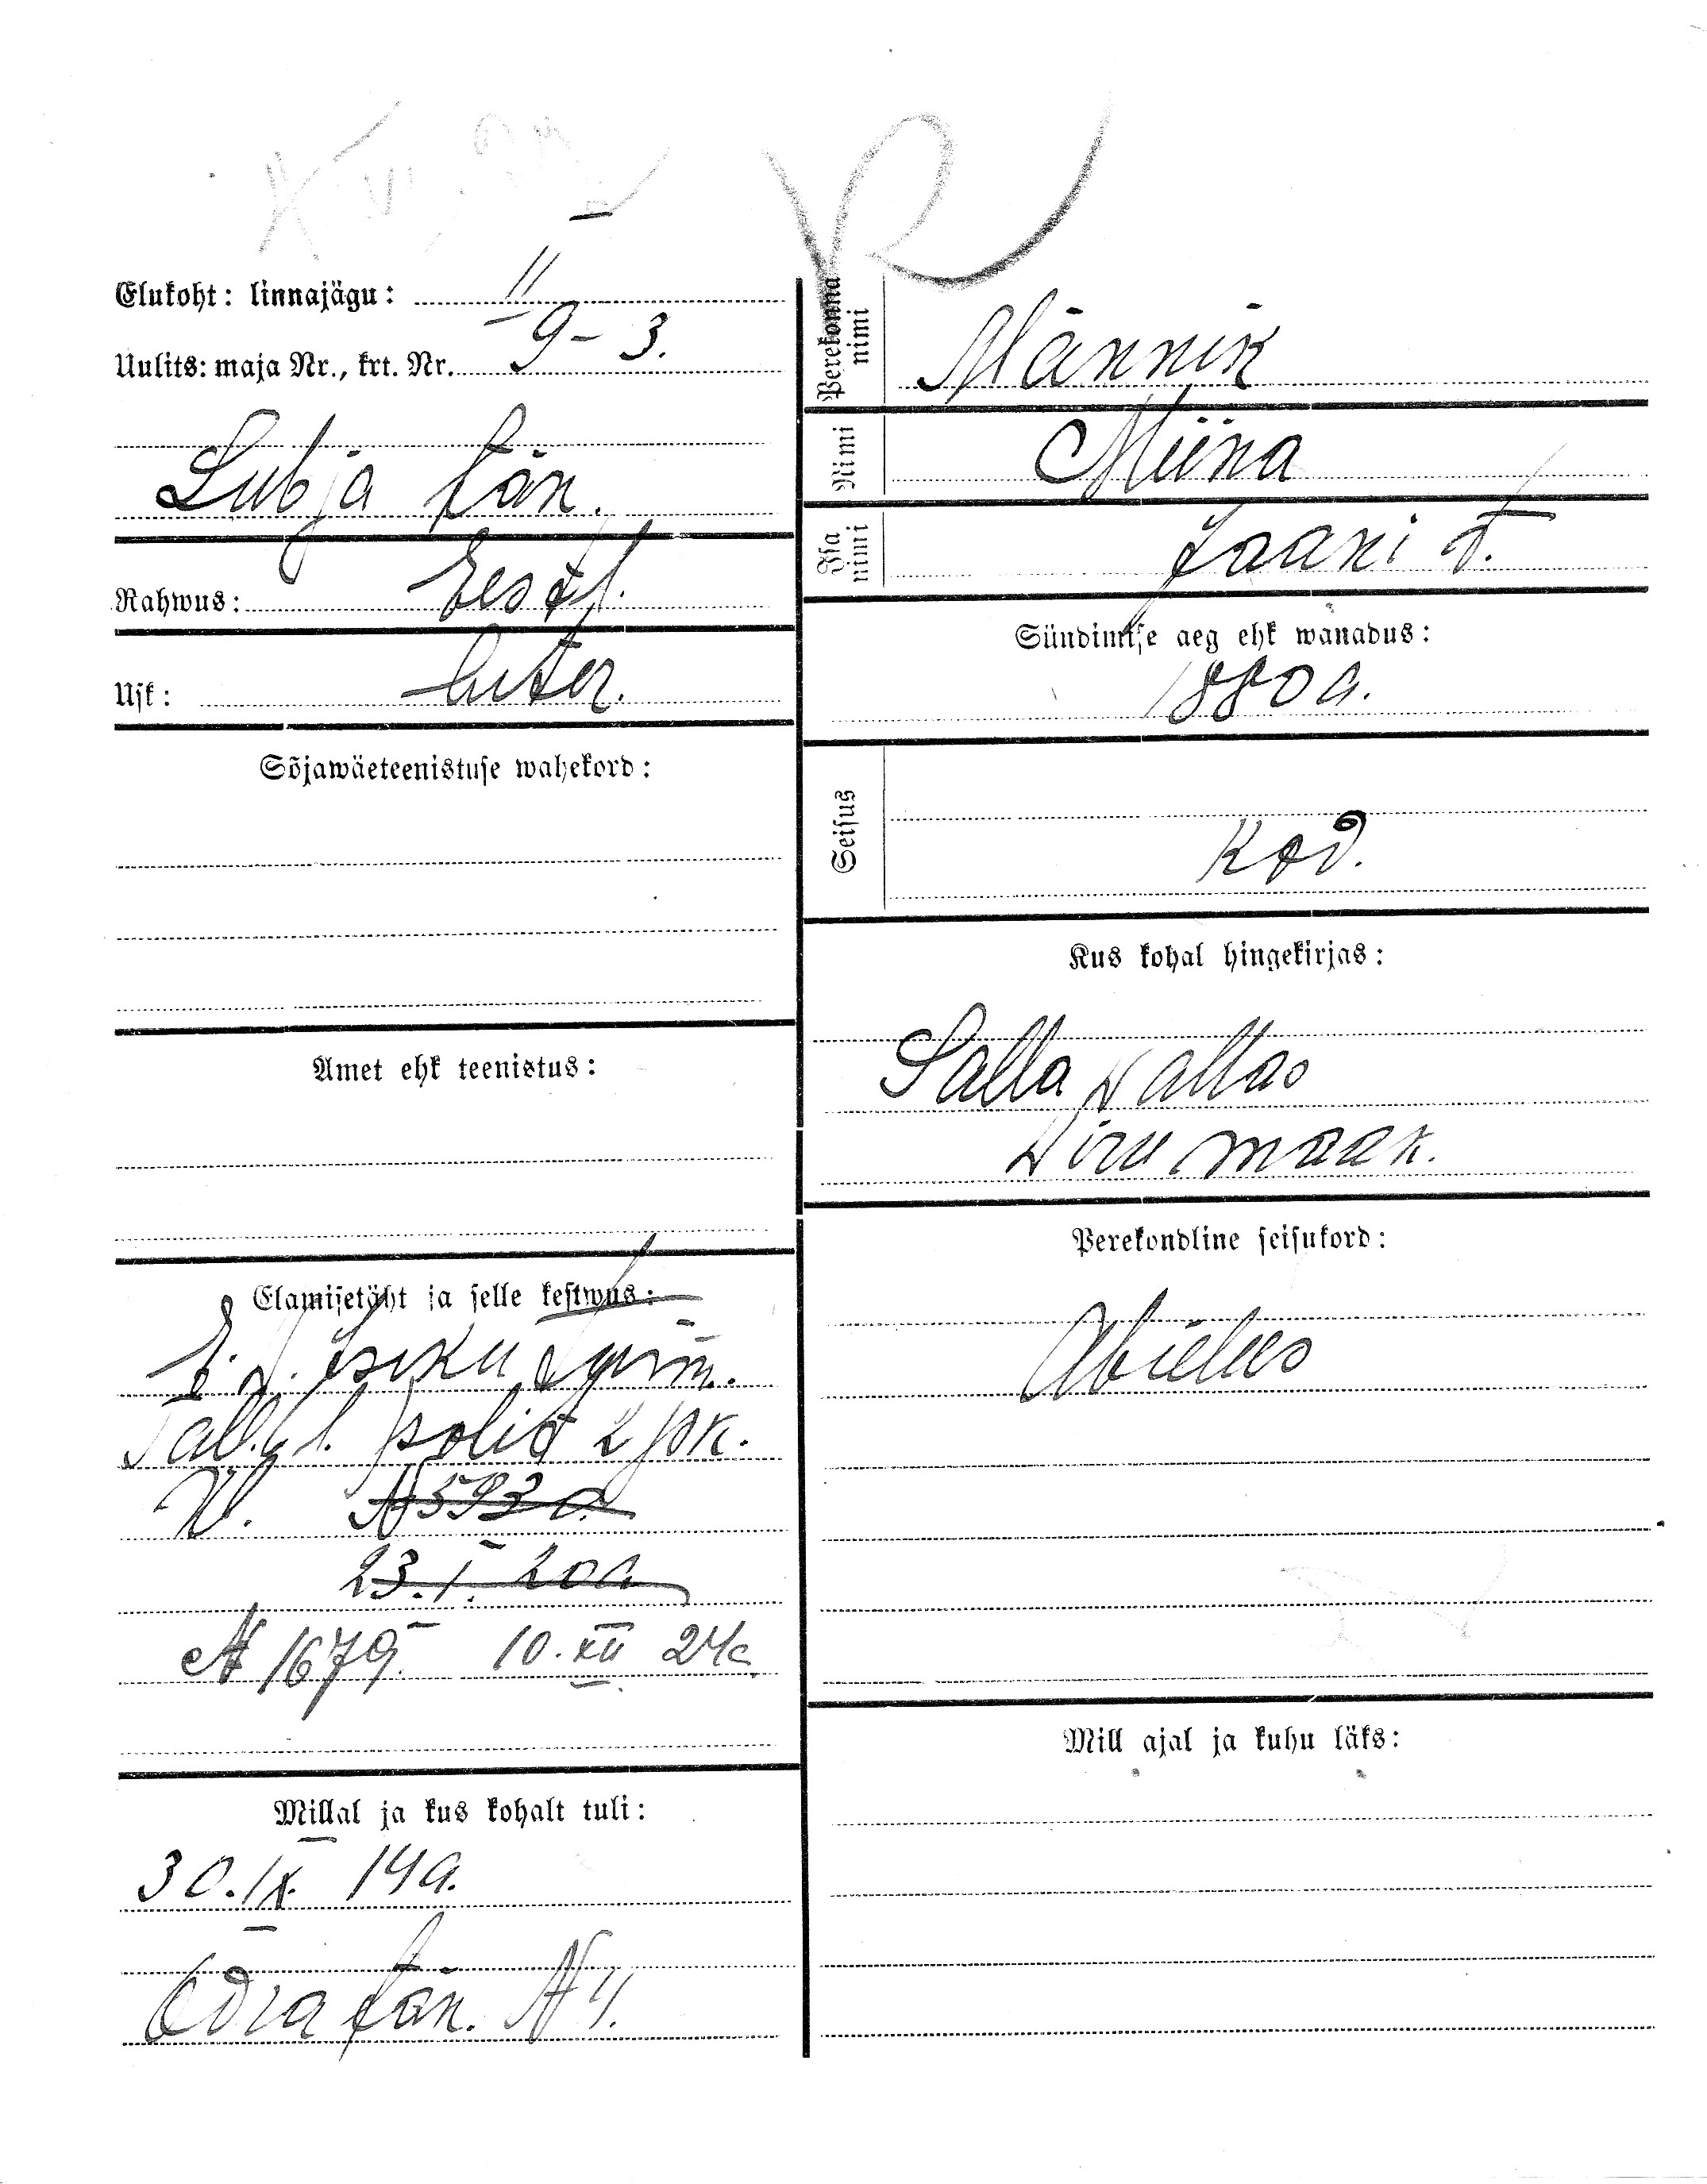 Elukoht: linnajägu: II
Uulits: maja Nr., krt. Nr. 9–3.
Lubja tän.
Rahwus: Eestl.
Usk: Luter.
Sõjawäeteenistuse wahekord:
Amet ehk teenistus:
Elamisetäht ja selle kestwus:
Isiku
Tal. l. polid 2 jsk.
V. № 593 a.
23.I.20a
№ 1679. 10.XII 24a
Millal ja kus kohalt tuli:
30.IX. 14a.
Odra tän. № 4.
Perekonna nimi Männik
Nimi Miina
Isa nimi Jaani t.
Sündimise aeg ehk wanadus:
1880 a.
Seisus
Kod.
Kus kohal hingekirjas:
Salla wallas
Wiru maak.
Perekondline seisukord:
Abielus
Mill ajal ja kuhu läks: